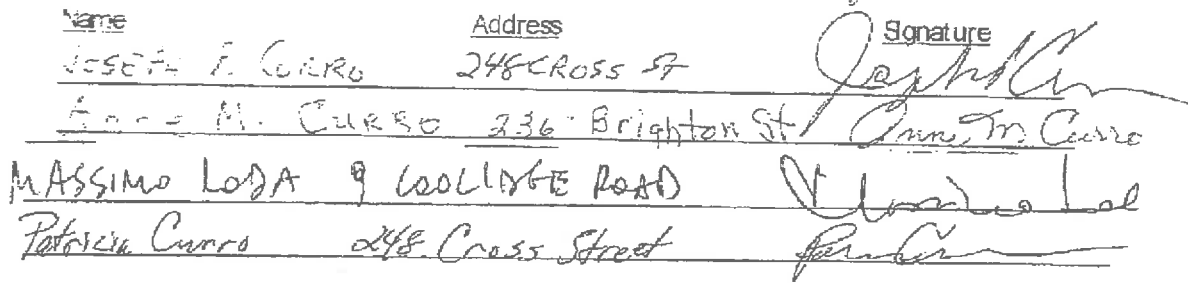 Name Address Signature
JOSEPH A. CURRO 248 CROSS ST Joseph A Cu
Anne M. CURRO 236 Brighton St Anne M Curro
MASSIMO LODA 9 COOLIDGE ROAD Massimo Loda
Patricia Curro 248 Cross Street